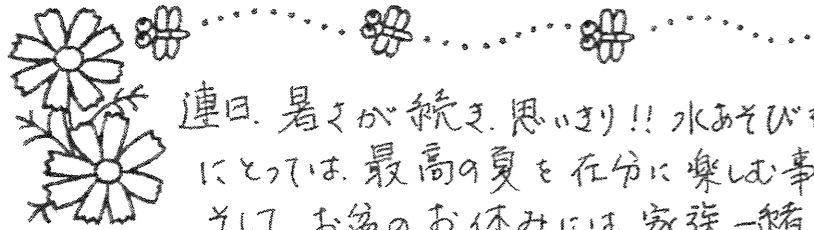 連日、暑さが続き、思いきり!!水あそびを
にとっては、最高の夏を存分に楽しむ事
そして、お盆のお休みには、家族一緒